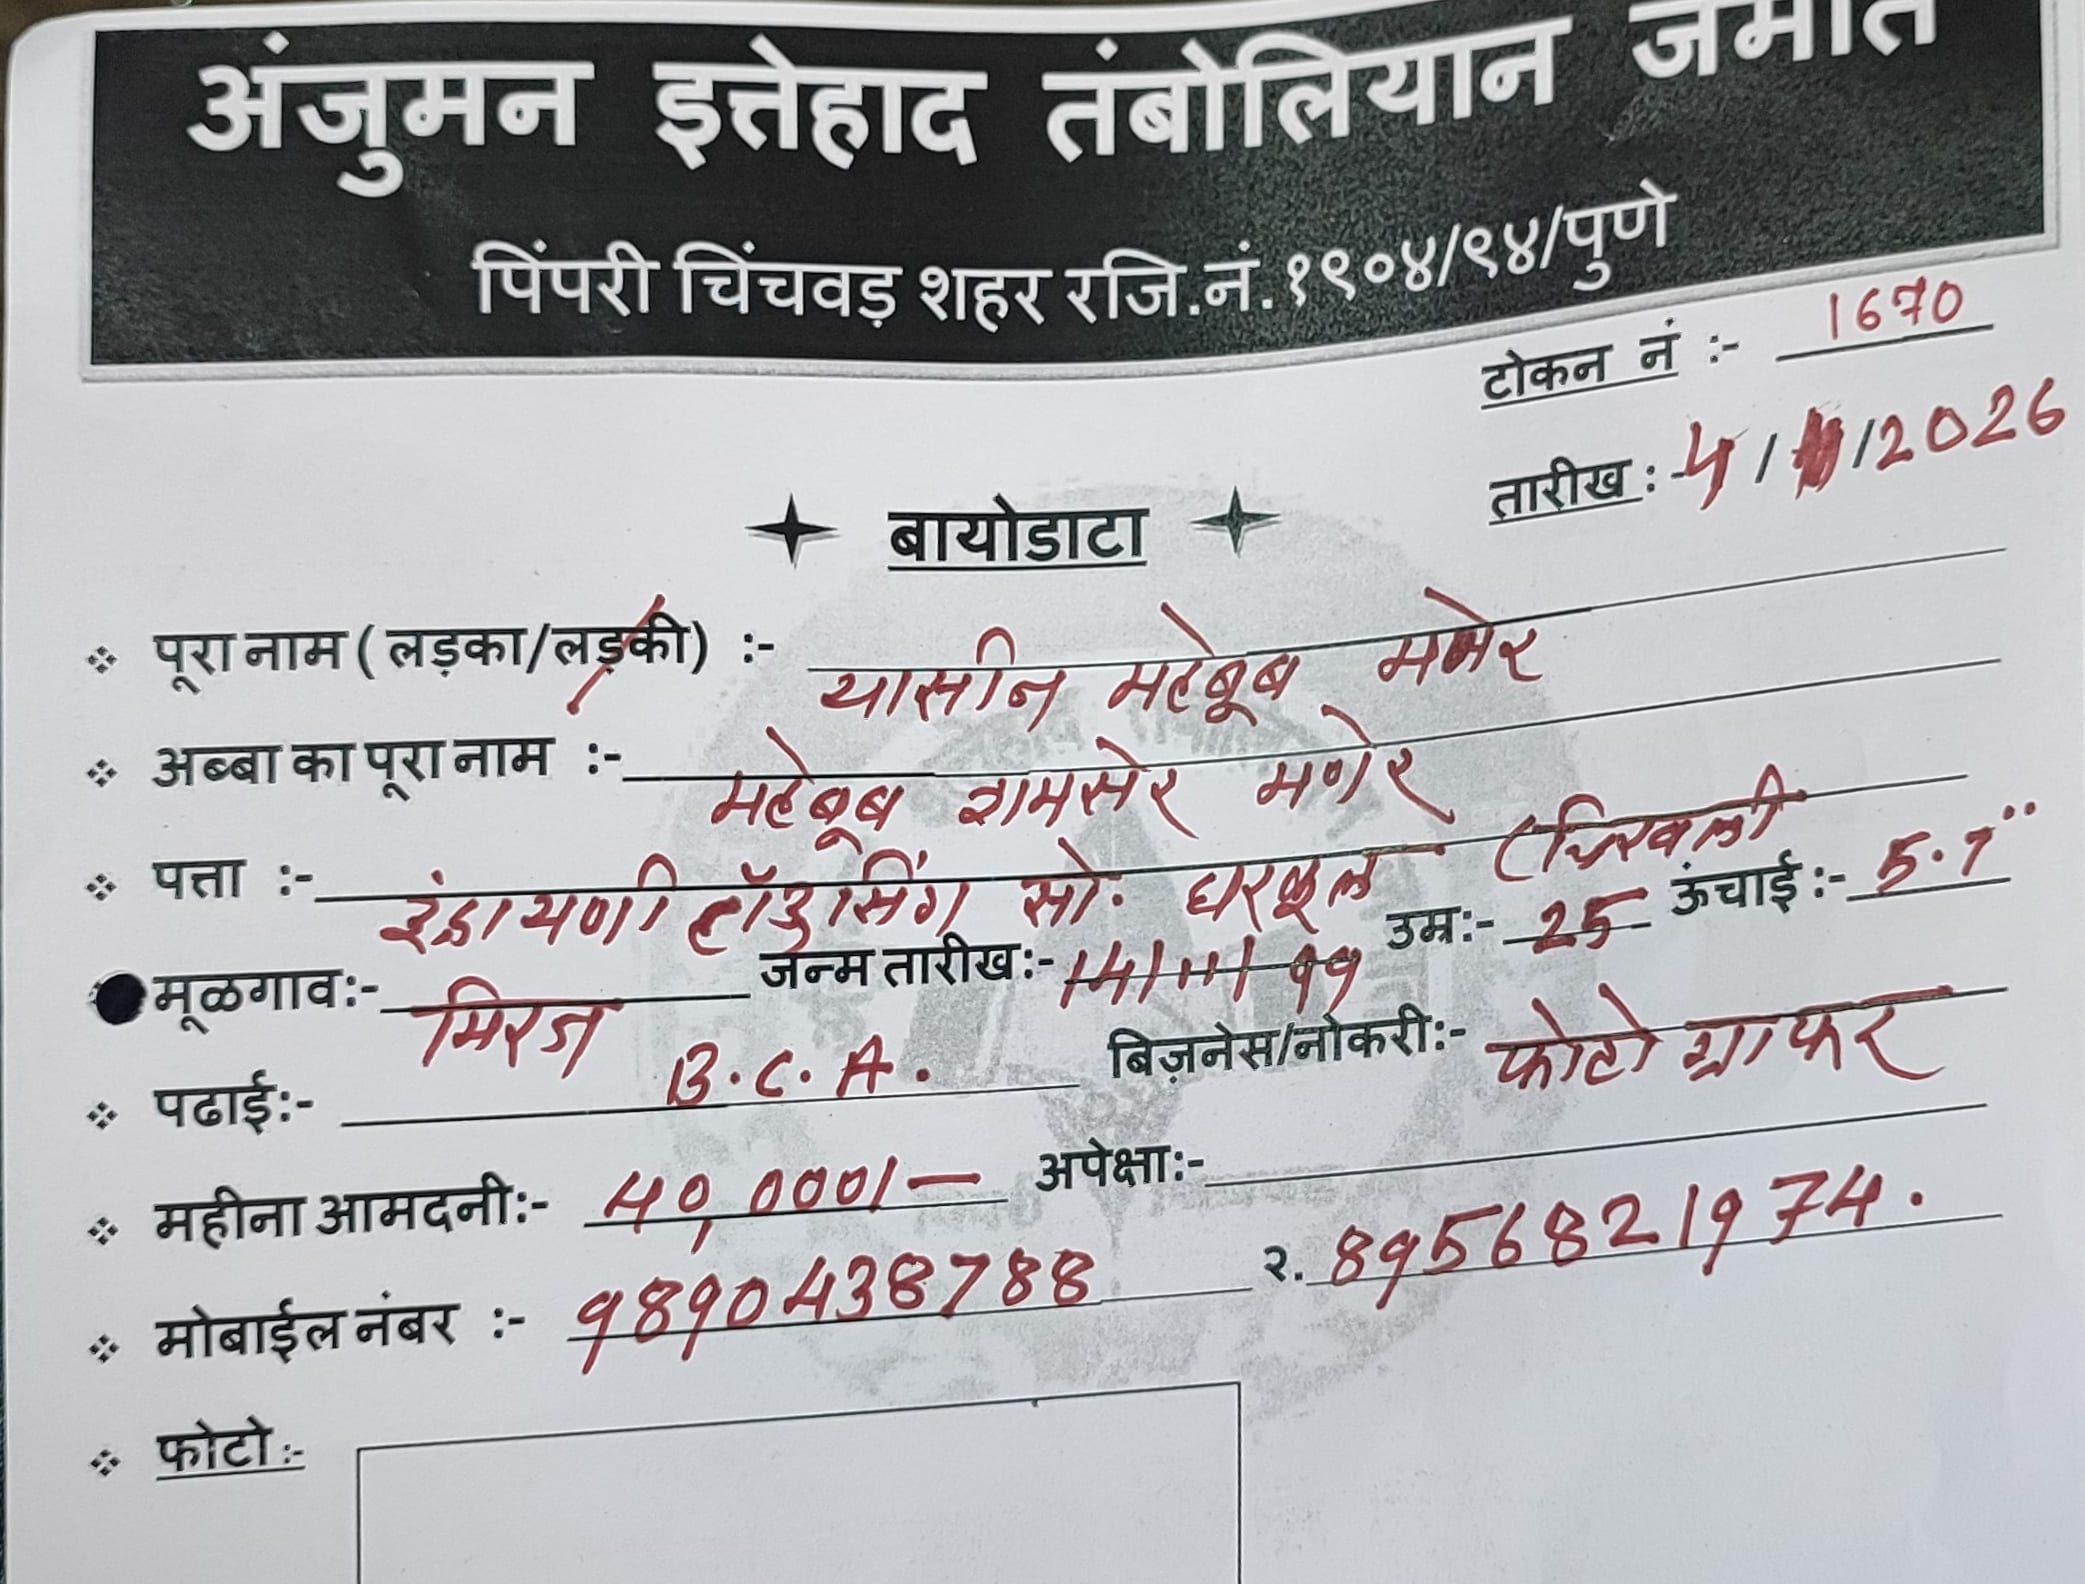 अंजुमन इत्तेहाद तंबोलियान जमात
पिंपरी चिंचवड़ शहर रजि.नं.१९०४/९४/पुणे
टोकन नं :- 1670
तारीख :- 4/ /2026
बायोडाटा
पूरा नाम ( लड़का/लड़की) :- यासीन महेबूब मणेर
अब्बा का पूरा नाम :- महेबूब शमसेर मणेर
पत्ता :- इंद्रायणी हॉउसिंग सो. घरकूल (चिखली
उम्र:- 25 ऊंचाई :- 5.7"
मूळगाव:- मिरज जन्म तारीख:- 14/11/99
पढाई:- B.C.A. बिज़नेस/नोकरी:- फोटो ग्राफर
महीना आमदनी:- 40,000/- अपेक्षा:-
मोबाईल नंबर :- 9890438788 २. 8956821974.
फोटो :-